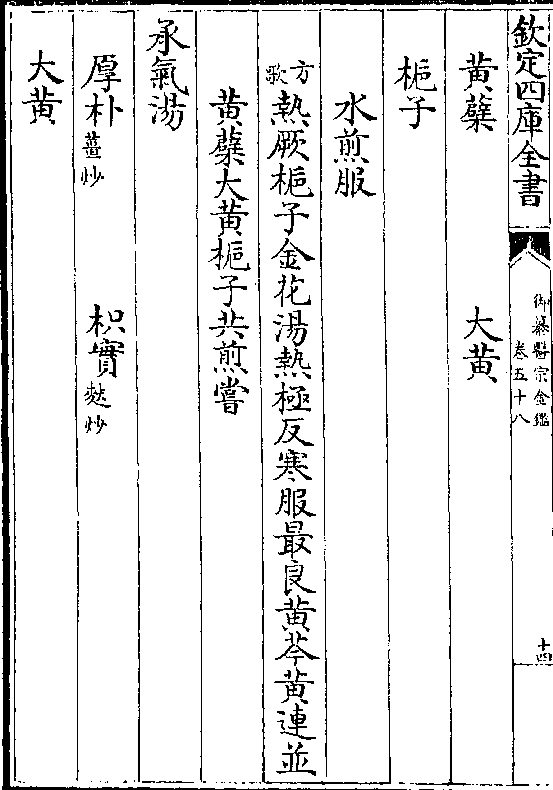 欽定四庫全書
御纂醫宗金鑑
卷五十八
十四
黄蘗 大黄
梔子
水煎服
方歌 熱厥梔子金花湯熱極反寒服最良黄芩黄連並
黄蘗大黄梔子共煎嘗
承氣湯
厚朴薑炒 枳實麩炒
大黄